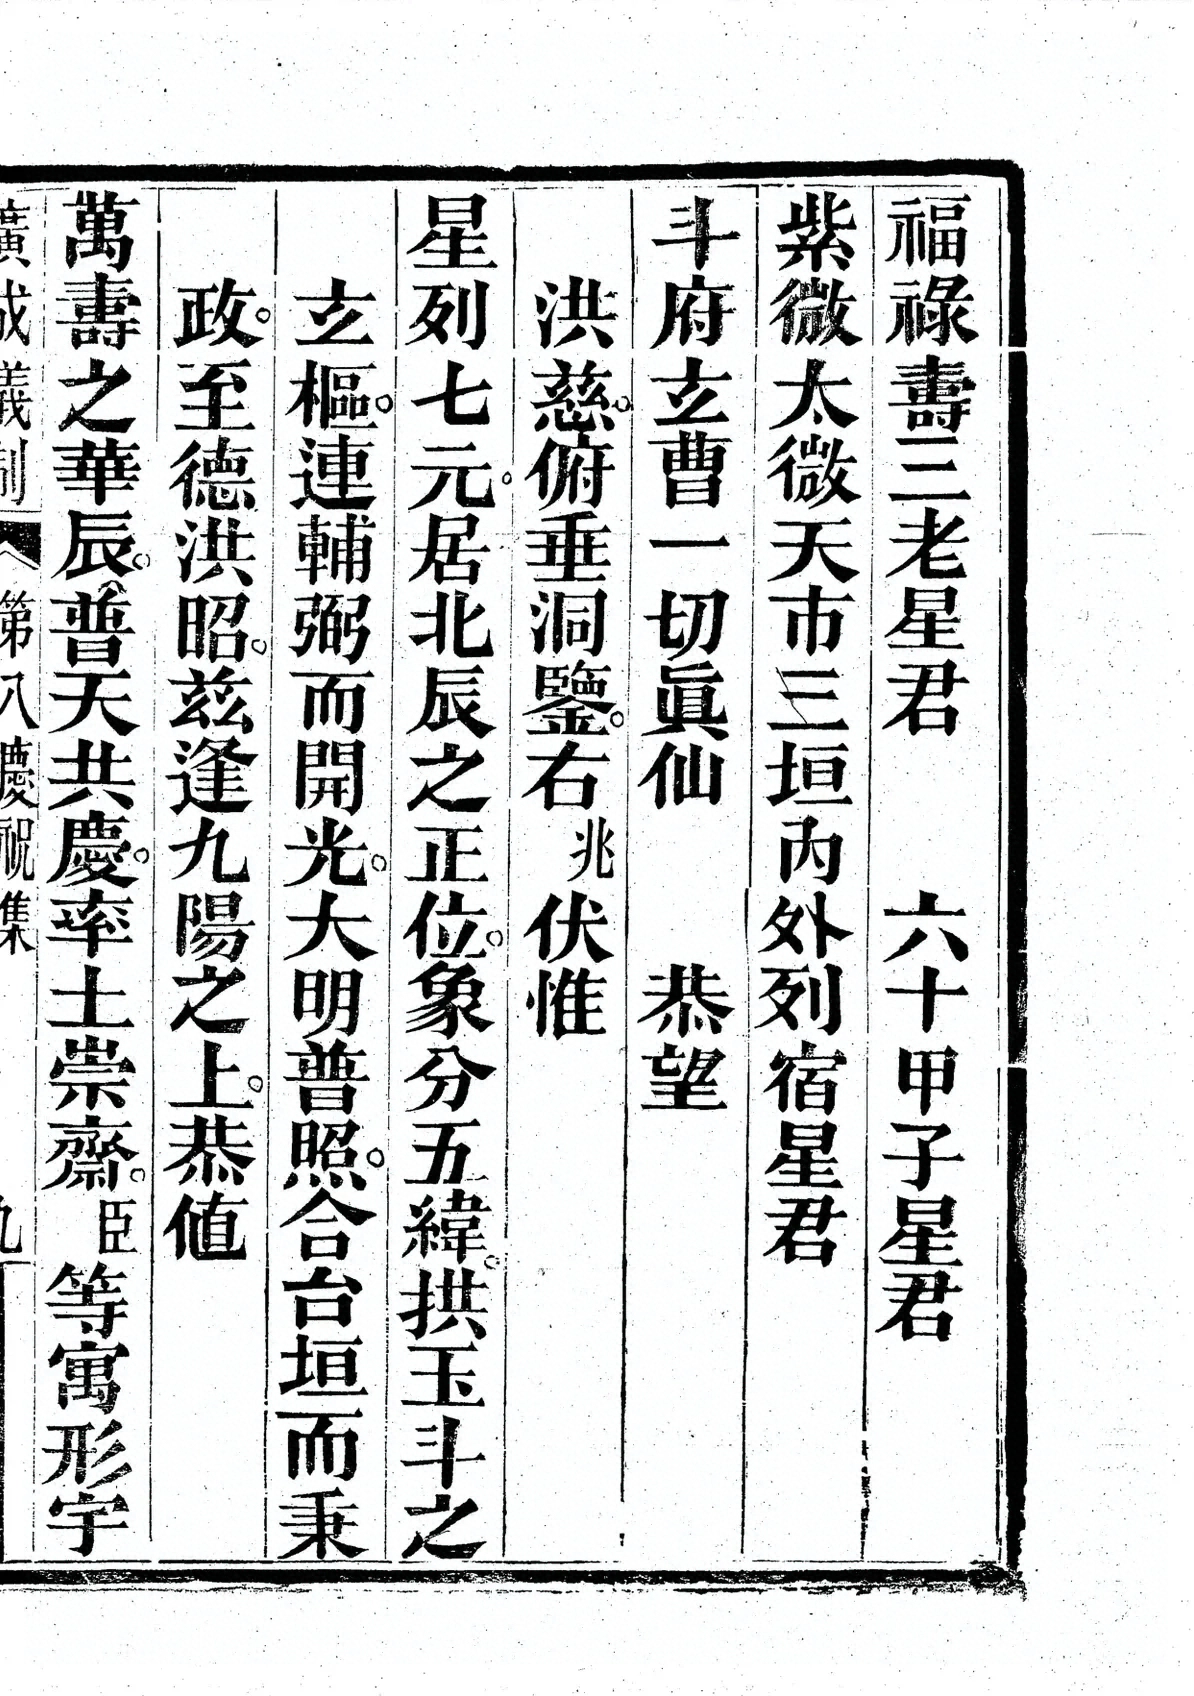 福祿壽三老星君　六十甲子星君
紫微太微天市三垣內外列宿星君
斗府玄曹一切眞仙　恭望
洪慈。俯垂洞鑒。右兆伏惟
星列七元。居北辰之正位。象分五緯。拱玉斗之
玄樞。連輔弼而開光。大明普照。合台垣而秉
政。至德洪昭。茲逢九陽之上。恭値
萬壽之華辰。普天共慶。率土崇齋。臣等寓形宇
廣成儀制　第八慶祝集　九